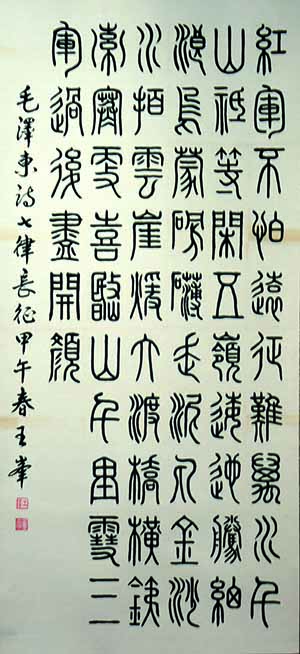 紅軍不怕遠征難萬水千
山祇等閑五嶺逶迤騰細
浪烏蒙磅礴走泥丸金沙
水拍雲崖暖大渡橋橫鐵
索寒更喜岷山千里雪三
軍過後盡開顏
毛澤東詩七律長征甲午春王峯